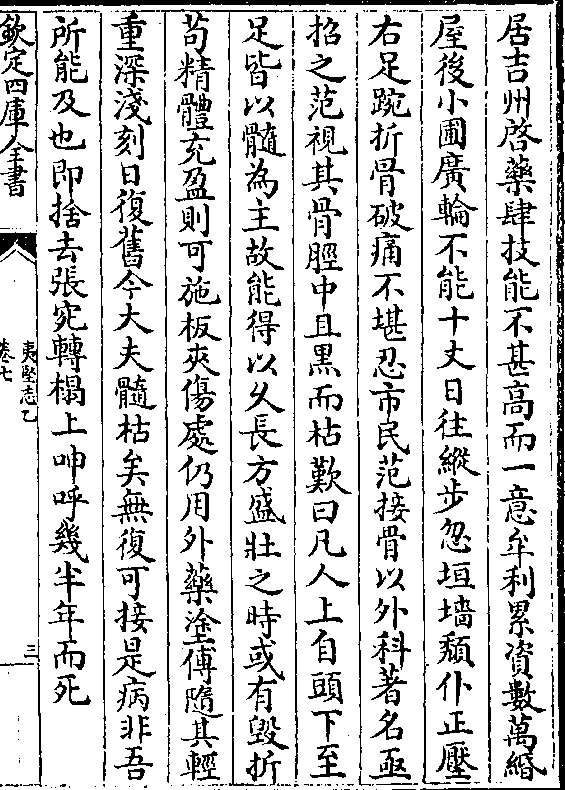 居吉州啓藥肆技能不甚高而一意牟利累資數萬緡
屋後小圃廣輪不能十丈日往縱步忽垣墻頽仆正壓
右足踠折骨破痛不堪忍市民范接骨以外科著名亟
招之范視其骨脛中且黒而枯歎曰凡人上自頭下至
足皆以髓為主故能得以久長方盛壯之時或有毀折
苟精體充盈則可施板夾傷處仍用外藥塗傅隨其輕
重深淺刻日復舊今大夫髓枯矣無復可接是病非吾
所能及也即捨去張宛轉榻上呻呼幾半年而死
欽定四庫全書
夷堅志乙
卷七
三